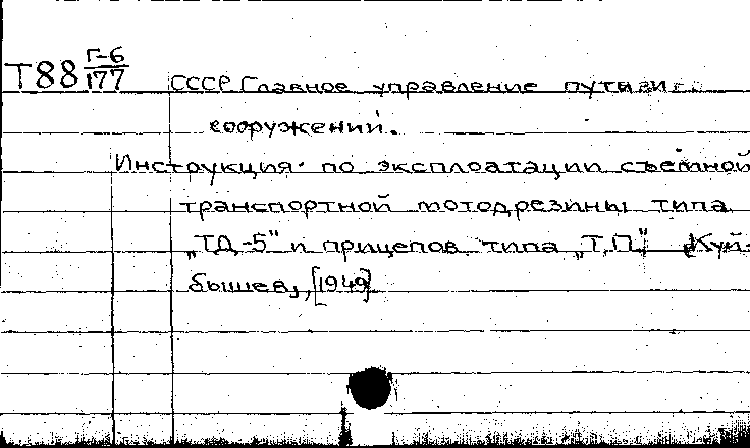 Т88 Г-6/177
СССР. Главное управление пути и
сооружений.
Инструкция по эксплоатации съемной
транспортной мотодрезины типа
„ТД-5" и прицепов типа „Т.П." Куй-
бышев, [1949]